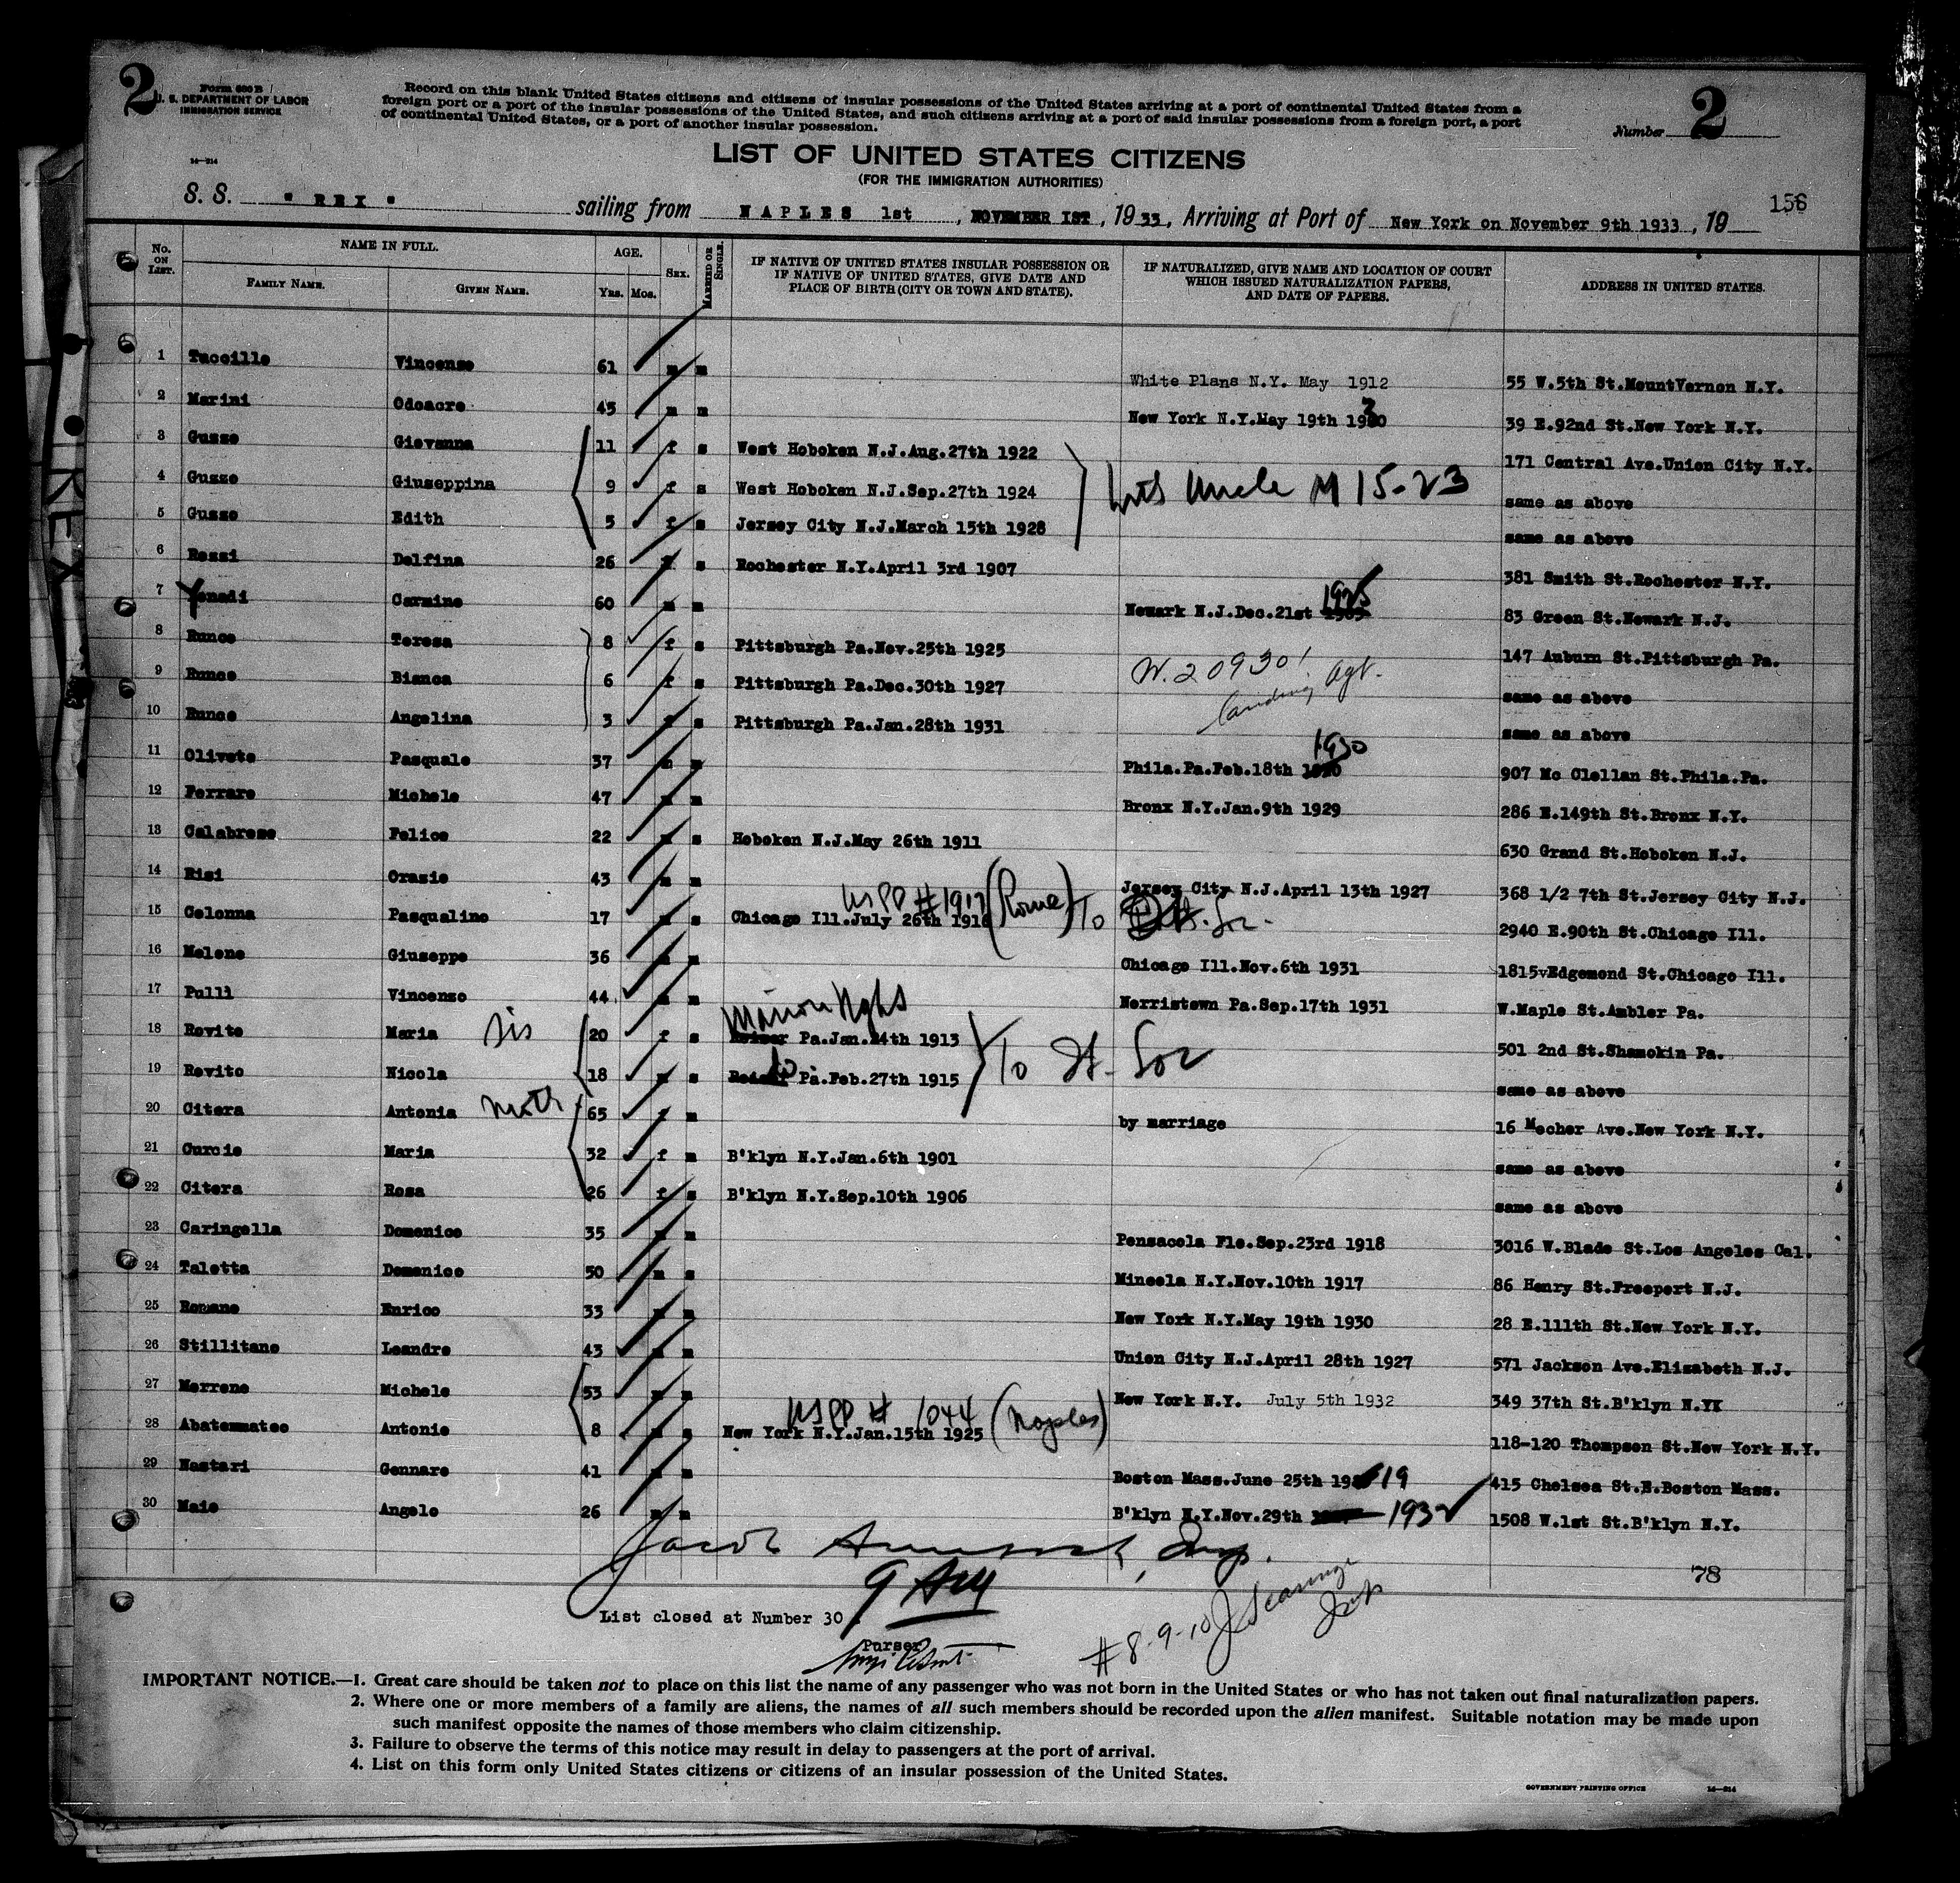 2
Form 630 B
U. S. DEPARTMENT OF LABOR
IMMIGRATION SERVICE
14—214
Record on this blank United States citizens and citizens of insular possessions of the United States arriving at a port of continental United States from a
foreign port or a port of the insular possessions of the United States, and such citizens arriving at a port of said insular possessions from a foreign port, a port
of continental United States, or a port of another insular possession.
Number 2
LIST OF UNITED STATES CITIZENS
(FOR THE IMMIGRATION AUTHORITIES)
156
S. S. " REX " sailing from NAPLES 1st , NOVEMBER 1ST , 1933, Arriving at Port of New York on November 9th 1933 , 19
No. ON LIST. NAME IN FULL. FAMILY NAME. GIVEN NAME. AGE. Yrs. Mos. SEX. MARRIED OR SINGLE. IF NATIVE OF UNITED STATES INSULAR POSSESSION OR IF NATIVE OF UNITED STATES, GIVE DATE AND PLACE OF BIRTH (CITY OR TOWN AND STATE). IF NATURALIZED, GIVE NAME AND LOCATION OF COURT WHICH ISSUED NATURALIZATION PAPERS, AND DATE OF PAPERS. ADDRESS IN UNITED STATES.
1 Tuccillo Vincenzo 61 m m White Plans N.Y. May 1912 55 W.5th St.MountVernon N.Y.
2 Marini Odoacre 45 m m New York N.Y.May 19th 1930 39 E.92nd St.New York N.Y.
3 Guzzo Giovanna 11 f s West Hoboken N.J.Aug.27th 1922 171 Central Ave.Union City N.Y.
4 Guzzo Giuseppina 9 f s West Hoboken N.J.Sep.27th 1924 Uncle M 15-23 same as above
5 Guzzo Edith 5 f s Jersey City N.J.March 15th 1928 same as above
6 Rossi Delfina 26 f s Rochester N.Y.April 3rd 1907 381 Smith St.Rochester N.Y.
7 Yenadi Carmine 60 m m Newark N.J.Dec.21st 1925 83 Green St.Newark N.J.
8 Runco Teresa 8 f s Pittsburgh Pa.Nov.25th 1925 147 Auburn St.Pittsburgh Pa.
9 Runco Bianca 6 f s Pittsburgh Pa.Dec.30th 1927 W.20930' landing Agt. same as above
10 Runco Angelina 3 f s Pittsburgh Pa.Jan.28th 1931 same as above
11 Oliveto Pasquale 37 m m Phila.Pa.Feb.18th 1930 907 Mc Clellan St.Phila.Pa.
12 Ferraro Michele 47 m m Bronx N.Y.Jan.9th 1929 286 E.149th St.Bronx N.Y.
13 Calabrese Felice 22 m s Hoboken N.J.May 26th 1911 630 Grand St.Hoboken N.J.
14 Risi Orazio 43 m m Jersey City N.J.April 13th 1927 368 1/2 7th St.Jersey City N.J.
USPP #1917 (Rome) To St. Soc.
15 Colonna Pasqualino 17 m s Chicago Ill.July 26th 1916 2940 E.90th St.Chicago Ill.
16 Melone Giuseppe 36 m m Chicago Ill.Nov.6th 1931 1815vEdgemond St.Chicago Ill.
17 Pulli Vincenzo 44 m m Norristown Pa.Sep.17th 1931 W.Maple St.Ambler Pa.
18 Rovito Maria sis 20 f s Marion Hghts Pa.Jan.24th 1913 501 2nd St.Shamokin Pa.
19 Rovito Nicola 18 m s do. Pa.Feb.27th 1915 To It. Soc same as above
20 Citera Antonia moth 65 f m by marriage 16 Mecher Ave.New York N.Y.
21 Curcio Maria 32 f m B'klyn N.Y.Jan.6th 1901 same as above
22 Citera Rosa 26 f s B'klyn N.Y.Sep.10th 1906 same as above
23 Caringella Domenico 35 m m Pensacola Flo.Sep.23rd 1918 3016 W.Blade St.Los Angeles Cal.
24 Taletta Domenico 50 m s Mineola N.Y.Nov.10th 1917 86 Henry St.Freeport N.J.
25 Romano Enrico 33 m m New York N.Y.May 19th 1930 28 E.111th St.New York N.Y.
26 Stillitano Leandro 43 m m Union City N.J.April 28th 1927 571 Jackson Ave.Elizabeth N.J.
27 Morrone Michele 53 m m New York N.Y. July 5th 1932 349 37th St.B'klyn N.YK
USPP # 1044 (Naples)
28 Abatemmatteo Antonio 8 m s New York N.Y.Jan.15th 1925 118-120 Thompson St.New York N.Y.
29 Nastari Gennaro 41 m m Boston Mass.June 25th 1919 415 Chelsea St.E.Boston Mass.
30 Maio Angelo 26 m m B'klyn N.Y.Nov.29th 1932 1508 W.1st St.B'klyn N.Y.
Jacob Insp.
78
List closed at Number 30 .
Purser
#8-9-10 J Scanning
IMPORTANT NOTICE.—1. Great care should be taken not to place on this list the name of any passenger who was not born in the United States or who has not taken out final naturalization papers.
2. Where one or more members of a family are aliens, the names of all such members should be recorded upon the alien manifest. Suitable notation may be made upon
such manifest opposite the names of those members who claim citizenship.
3. Failure to observe the terms of this notice may result in delay to passengers at the port of arrival.
4. List on this form only United States citizens or citizens of an insular possession of the United States.
GOVERNMENT PRINTING OFFICE 14—214
REX